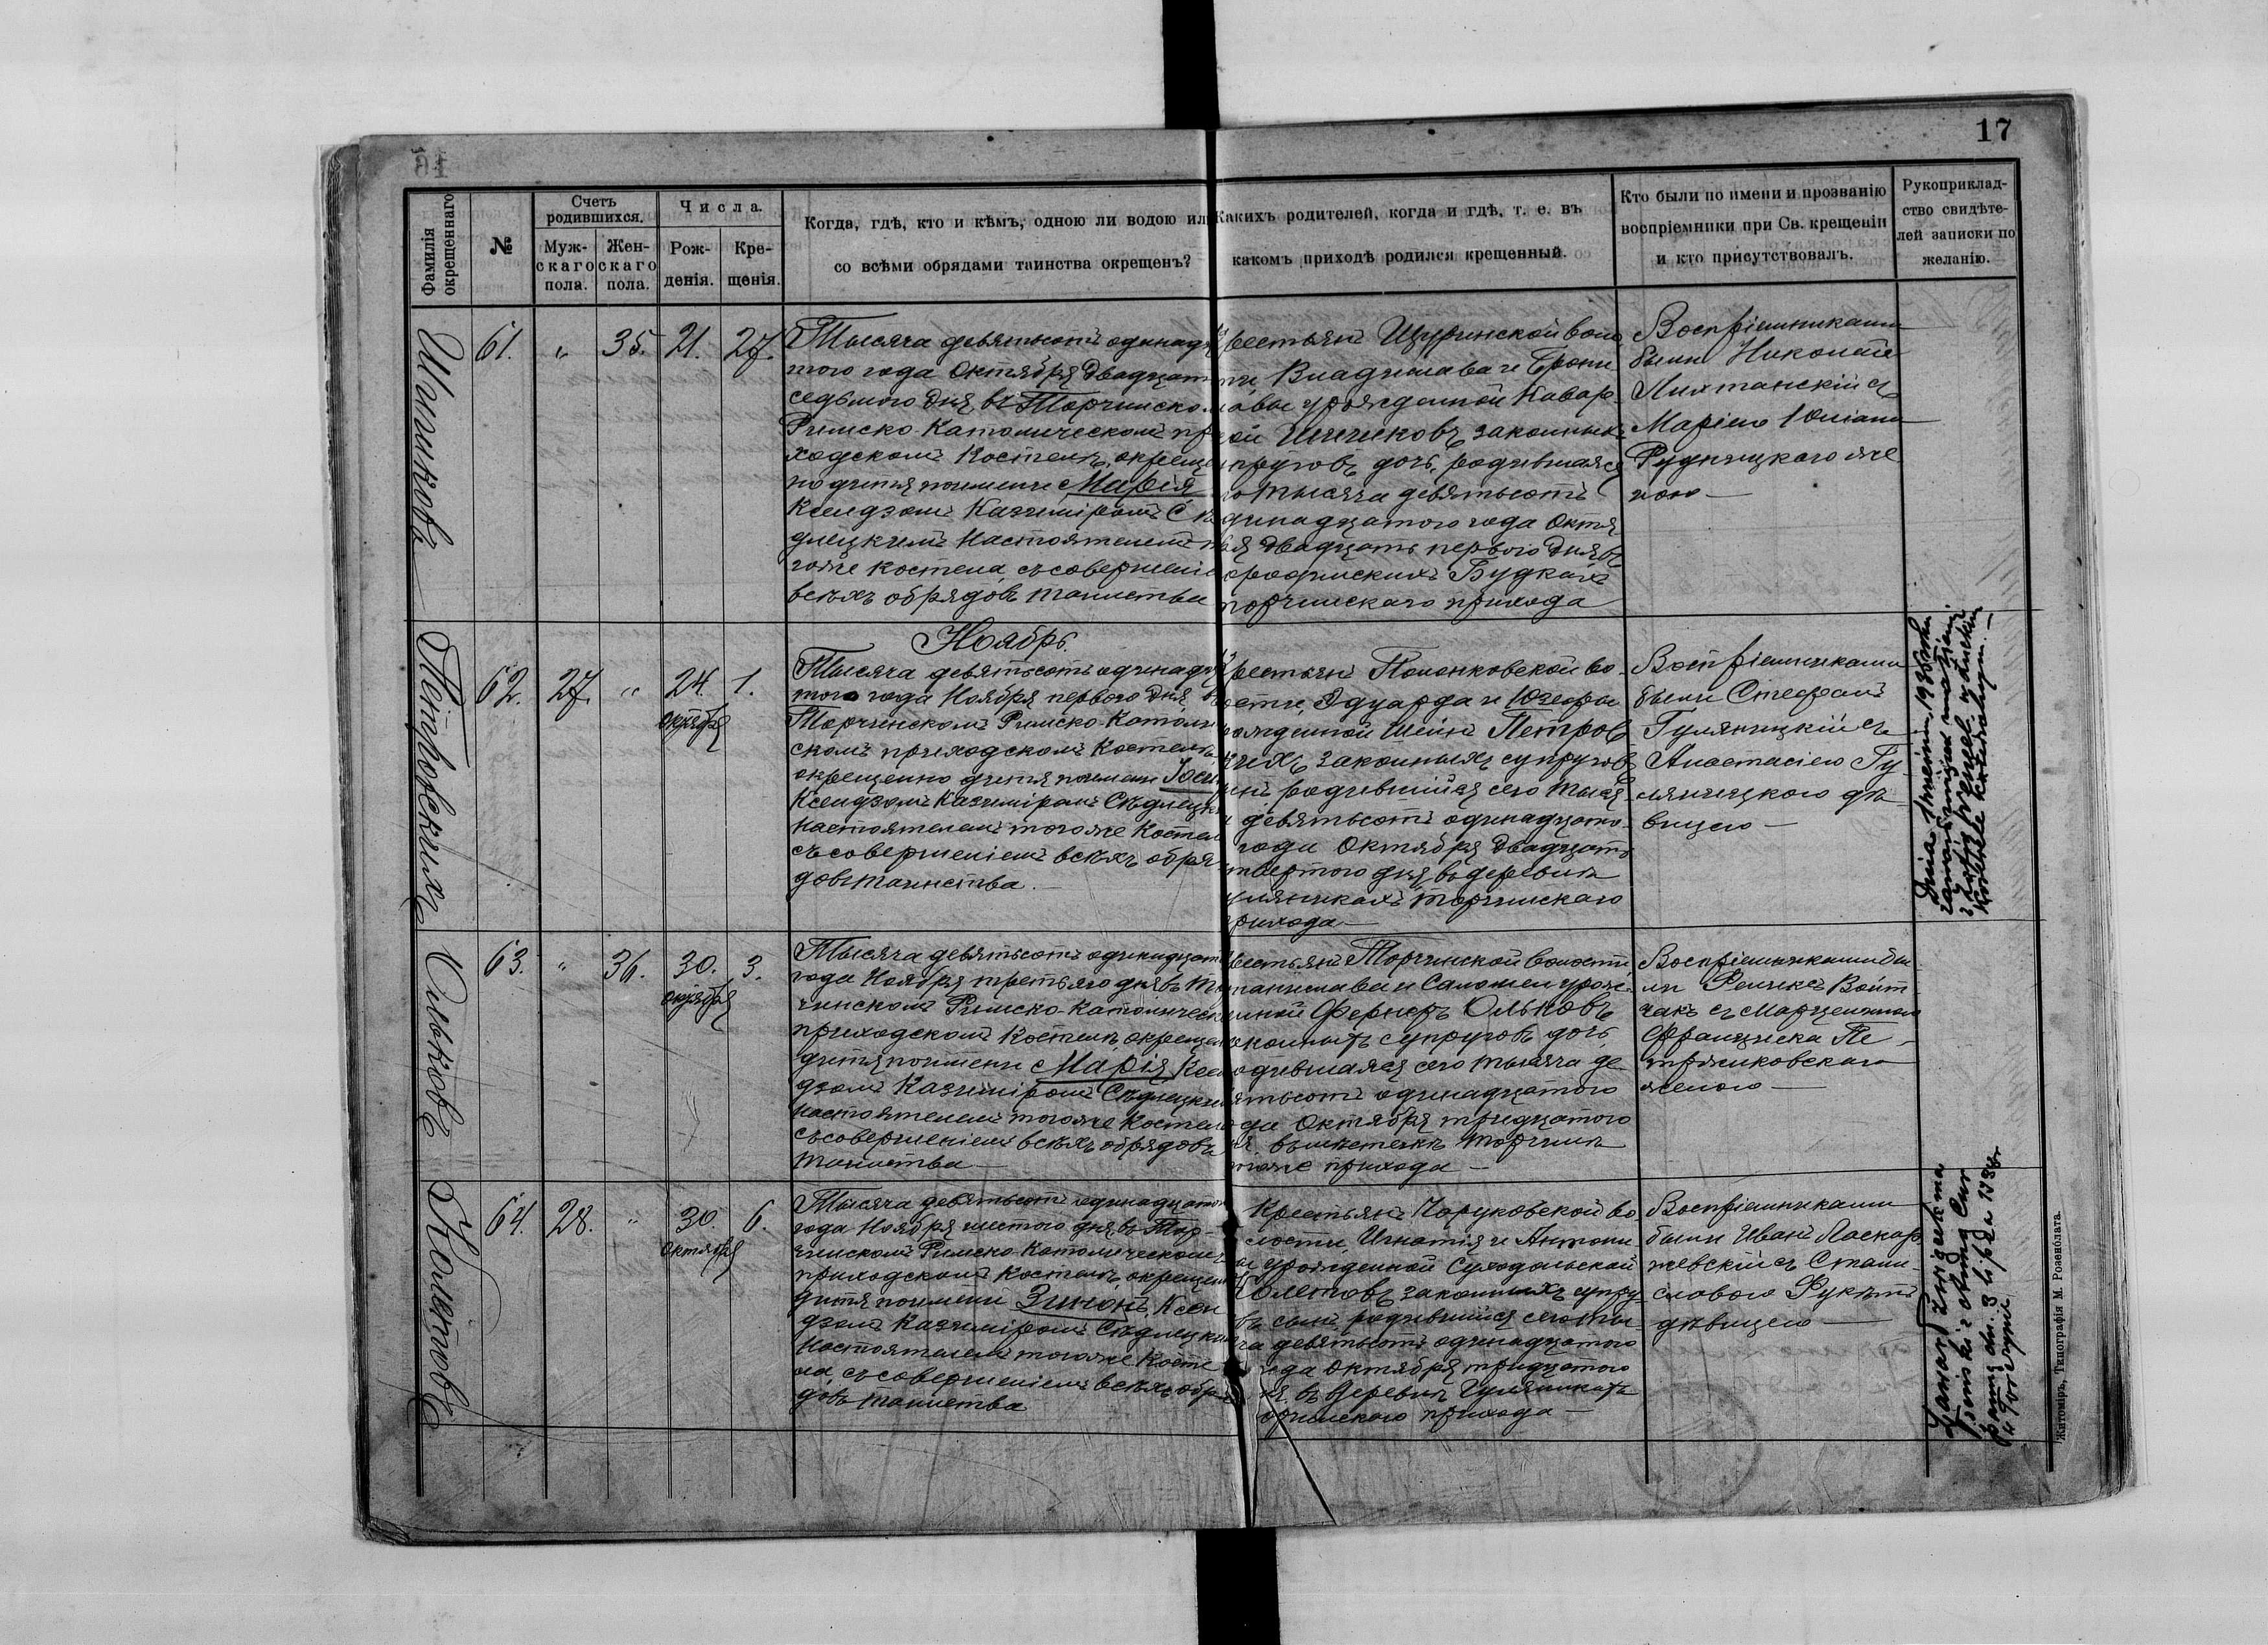 17
Фамилія окрещеннаго
№
Счетъ родившихся.
Муж-скаго пола.
Жен-скаго пола.
Числа.
Рож-денія.
Кре-щенія.
Когда, гдѣ, кто и кѣмъ, одною ли водою ил
со всѣми обрядами таинства окрещенъ?
Какихъ родителей, когда и гдѣ, т. е. въ
какомъ приходѣ родился крещенный.
Кто были по имени и прозванію
воспріемники при Св. крещеніи
и кто присутствовалъ.
Рукоприклад-
ство свидѣте-
лей записки по
желанію.
61. „ 35. 21. 27.
Тысяча девятьсотъ одинадц
того года Октября двадцат
седьмого дня, въ Торчинско
Римско-Католическомъ пр
ходскомъ Костелѣ, окреще
но дитя по имени Марія
Ксендзомъ Казиміромъ Сѣ
длецкимъ Настоятелемъ
гоже костела, съ совершені
всѣхъ обрядовъ таинства
рестьянъ Щуринской воло
ти, Владислава и Брони
авы урожденной Кавар
законных
пруговъ дочь, родившаяся
тысяча девятьсотъ
динадцатого года Октя
ря двадцать первого дня въ
Будкахъ
торчинскаго прихода
Воспріемниками
были Николай
съ
Маріею Юліана
Рудницкаго же
ною —
Ноябрь.
Петровскихъ
62. 27. „ 24. 1.
октября
Тысяча девятьсотъ одинадц
того года Ноября первого дня, в
Торчинскомъ Римско-Католи
скомъ приходскомъ Костелѣ
окрещенно дитя по имени
Ксендзомъ Казиміромъ Сѣдлецк
настоятелемъ тогоже Костел
съ совершеніемъ всѣхъ обря
довъ таинства —
рестьянъ Полонковской во
ости, Эдуарда и Юзефы
рожденной Шейнъ Петров
скихъ законныхъ супругов
родившійся сего тыся
девятьсотъ одинадцато
года Октября двадцать
твертого дня, въ деревнѣ
уляникахъ торчинскаго
прихода —
Воспріемниками
были Стефанъ
Гуляницкій съ
Анастасіею Гу
ляницкою дѣ
вицею —
Ольковъ
63. „ 36. 30. 3.
октября
Тысяча девятьсотъ одинадцат
года Ноября третьяго дня, въ То
чинскомъ Римско-Католическ
приходскомъ Костелѣ окрещен
дитя по имени Марія Ксен
дзомъ Казиміромъ Сѣдлецким
настоятелемъ тогоже Костел
съ совершеніемъ всѣхъ обрядовъ
таинства —
рестьянъ Торчинской волости
танислава и Саломеи урож
енной Фернеръ Ольковъ
аконныхъ супруговъ дочь
одившаяся сего тысяча де
ятьсотъ одинадцатого
ода Октября тридцатого
я, въ мѣстечкѣ торчинѣ
тоже прихода —
Воспріемниками бы
ли Феликсъ Войт
чакъ съ
Франциска Пе
женою —
64. 28. „ 30. 6.
октября
Тысяча девятьсотъ одинадцато
года Ноября шестого дня, въ Тор
чинскомъ Римско-Католическомъ
приходскомъ Костелѣ, окрещен
дитя по имени Ксен
дзомъ Казиміромъ Сѣдлецки
Настоятелемъ тогоже Косте
ла, съ совершеніемъ всѣхъ обря
довъ таинства
Крестьянъ Чаруковской во
лости, Игнатія и Антони
ы урожденной Суходольской
законныхъ супру
въ сынъ, родившійся сего ты
ча девятьсотъ одинадцатого
ода Октября тридцатого
я, въ деревнѣ Гуляникахъ
орчинскаго прихода —
Воспріемниками
были Иванъ
съ Стани
славою
дѣвицею —
zawarł związek ma
pami dn. 3 lipca 1938 r.
w Torczynie
Житоміръ, Типографія М. Розенблата.